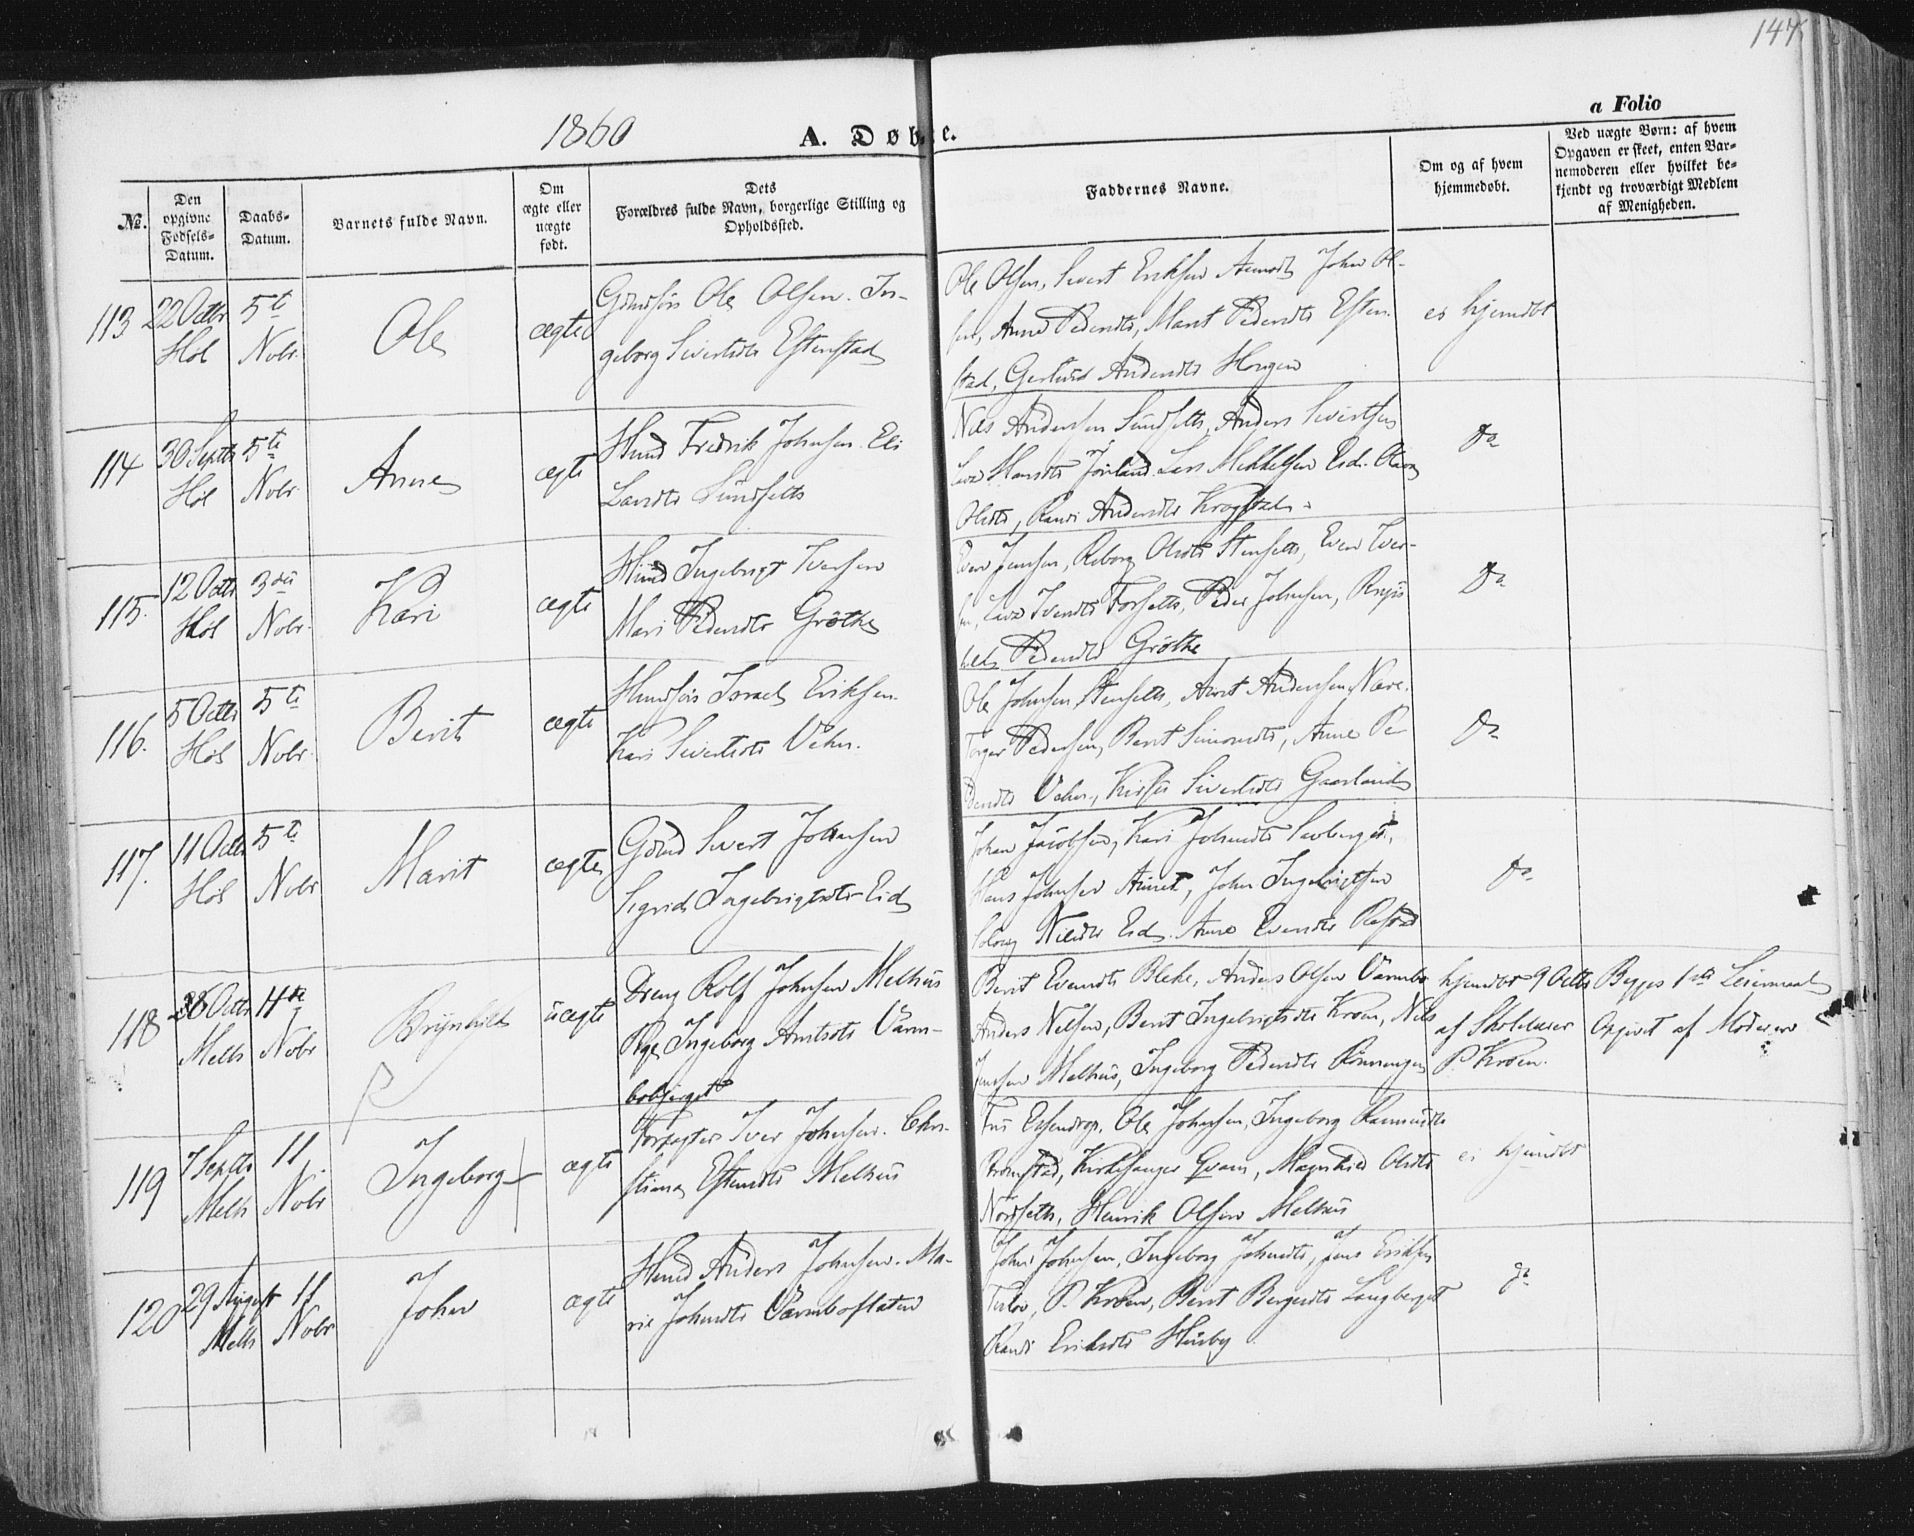 147
1860
A. Døbte.
a Folio
№.
Den opgivne Fødsels-Datum.
Daabs-Datum.
Barnets fulde Navn.
Om ægte eller uægte født.
Dets Forældres fulde Navn, borgerlige Stilling og Opholdssted.
Faddernes Navne.
Om og af hvem hjemmedøbt.
Ved uægte Børn: af hvem Opgaven er skeet, enten Barnemoderen eller hvilket bekjendt og troværdigt Medlem af Menigheden.
113
22 Octbr
Høl
5te
Nobr
Ole
ægte
Ole Olsen. In-
geborg Sivertsdtr Estenstad
Ole Olsen, Sivert Eriksen John Ol-
sen, Anne Pedersdtr, Marit Pedersdtr Esten-
stad, Gertrud Andersdtr Horgen
ei hjemdbt
114
30 Septbr
Høl
5te
Nobr.
Anne
ægte
Huusmd Fredrik Johnsen. Eli
Larsdtr Sundseth
Nils Andersen Sundseth, Anders Sivertsen
Hansdtr Lars Mikkelsen Eid.
Olsdtr, Randi Andersdtr Krogstad
Do
115.
12 Octbr
Høl
3die
Nobr.
Kari
ægte
Huusmd Ingebrigt Iversen
Mari Pedersdtr Grøthe
Even Jensen, Reborg Olsdtr Stenseth, Even Iver-
sen, Iversdtr Forseth, Peder Johnsen,
Pedersdtr Grøthe
Do
116.
5 Octbr
Høl
5te
Nobr.
Berit
ægte
Israel Eriksen.
Kari Sivertsdtr Vehn.
Ole Johnsen Stenseth, Arnt Andersen
Pedersen, Berit Simonsdtr, Anne Pe-
dersdtr Vehn, Sivertsdtr Gaasland
Do
117.
11 Octbr
Høl
5te
Nobr
Marit
ægte
Gdmd Sivert Johnsen
Sigrid Ingebrigtsdtr Eid
Johan Jacobsen, Kari Johnsdtr
Hans Johnsen John Ingebrigtsen
Solveg Nilsdtr Eid. Anne Evensdtr
Do
118
Octbr
Melh
11te
Nobr
Brynhild
uægte
Dreng Rolf Johnsen Melhus
Pige Ingeborg Arntsdtr Varm-
bobjerget
Berit Evensdtr Bleke, Anders Olsen Varmbo
Anders Nilsen, Berit Ingebrigtsdtr Kroen, Nils
Jensen Melhus, Ingeborg Pedersdtr Rønningen
hjemdbt 9 Octbr
af Skolelærer
P. Kroen.
Begges 1ste Leiermaal
Opgivet af Moderen
119
7 Septbr
Melh
11
Nobr
Ingeborg
ægte
Forpagter Iver Johnsen. Chri-
stiana Estensdtr Melhus
Fru Essendrop, Ole Johnsen, Ingeborg
Kirkesanger Qvam, Magnhild Olsdtr
Nordseth, Henrik Olsen Melhus
ei hjemdbt
120
29 August
Melh
11
Nobr
John
ægte
Huusmd Anders Johnsen. Ma-
rie Johnsdtr Varmboflaten
John Johnsen, Ingeborg Johnsdtr, Jens Eriksen
P. Kroen, Berit Bergersdtr Langberget
Randi Eriksdtr Huusby
Do